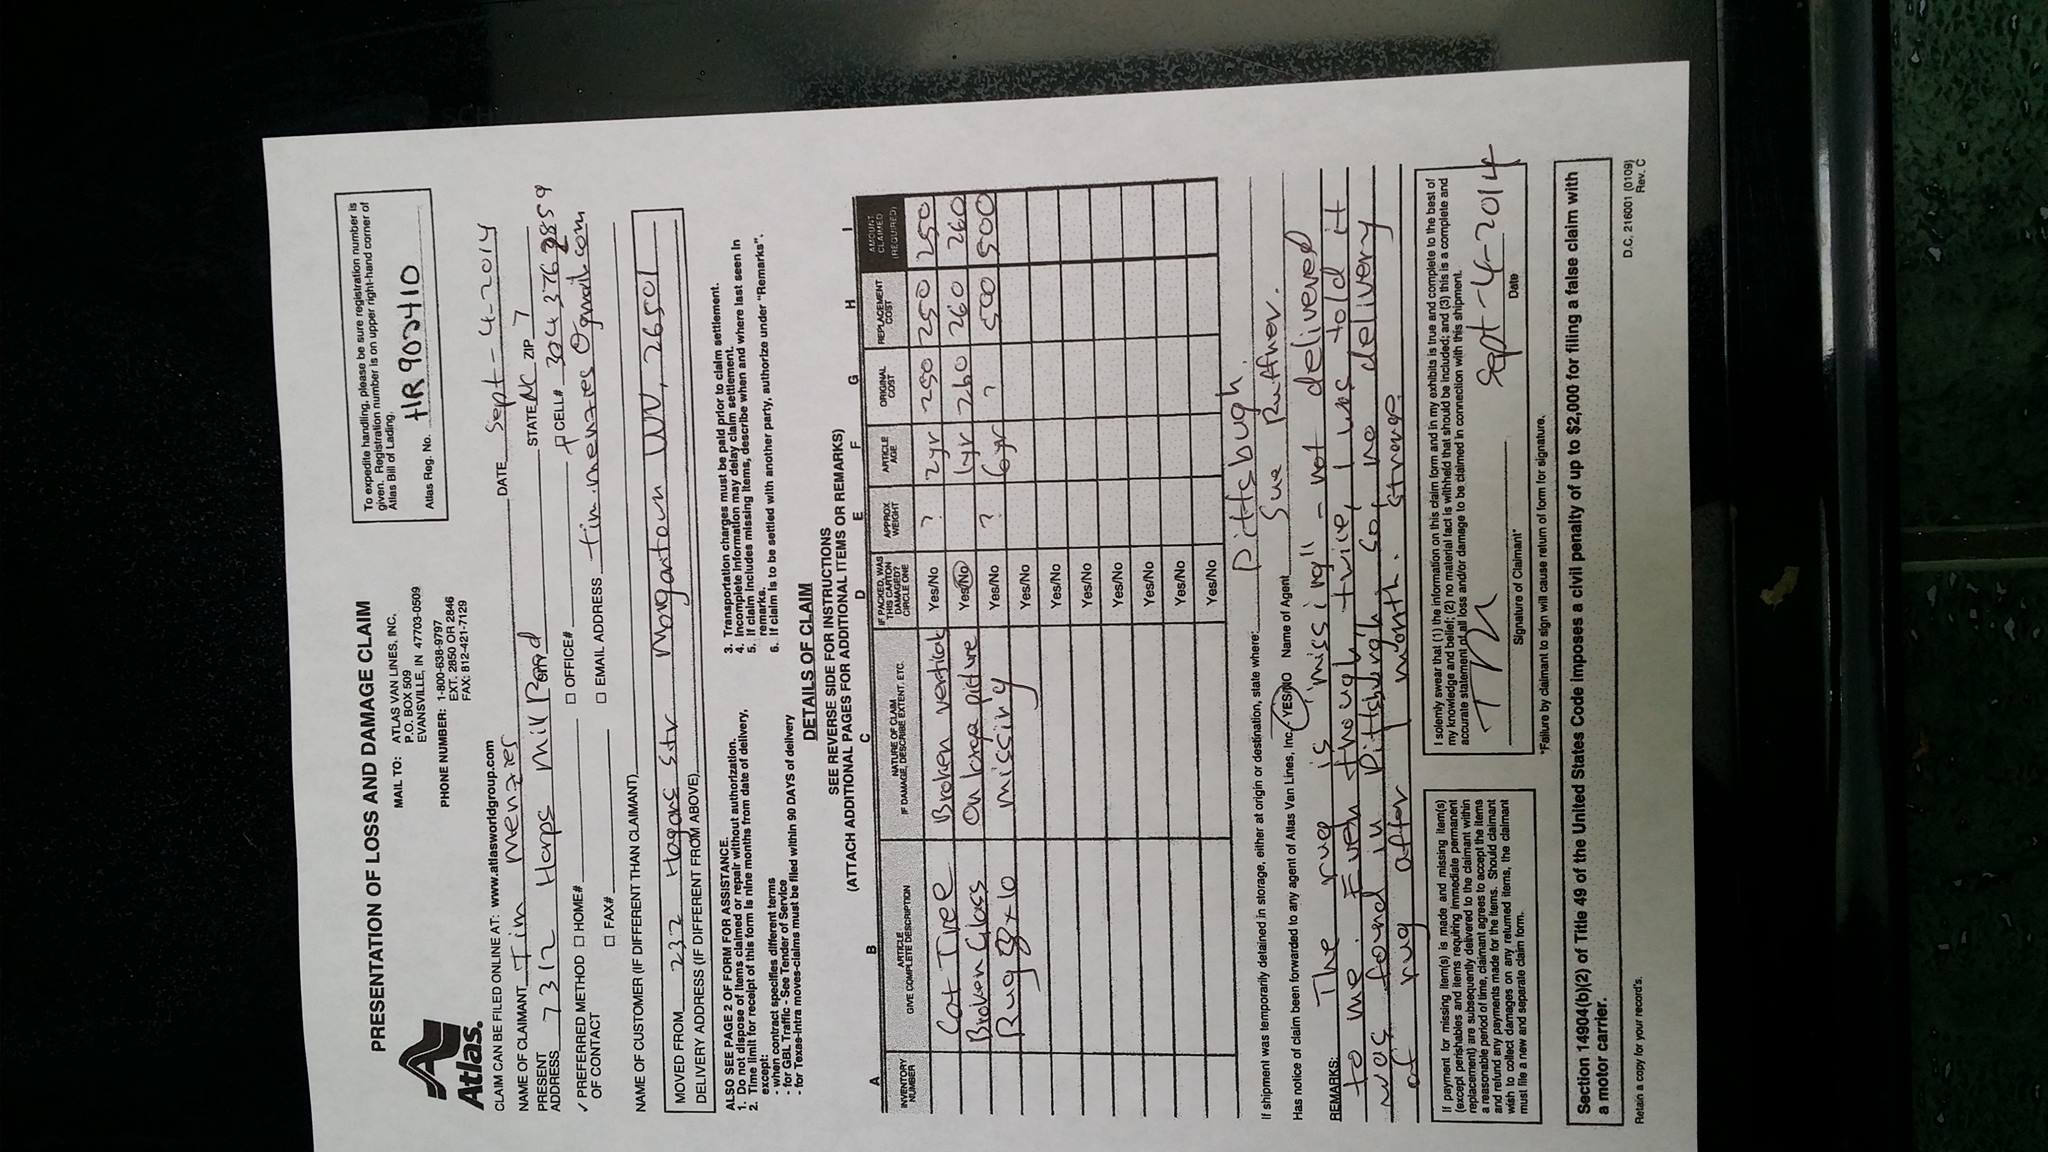 PRESENTATION OF LOSS AND DAMAGE CLAIM
MAIL TO: ATLAS VAN LINES, INC.
P.O. BOX 509
EVANSVILLE, IN 47703-0509
PHONE NUMBER: 1-800-638-9797
EXT. 2850 OR 2846
FAX: 812-421-7129
To expedite handling, please be sure registration number is
given. Registration number is on upper right-hand corner of
Atlas Bill of Lading.
Atlas Reg. No. HR 902410
Atlas.
CLAIM CAN BE FILED ONLINE AT: www.atlasworldgroup.com
DATE Sept-4-2014
NAME OF CLAIMANT Tim Menzies
PRESENT
ADDRESS 7312 Harps Mill Road STATE NC ZIP 7
✓ PREFERRED METHOD ☐ HOME# ☐ OFFICE# ☐ CELL# 304 376 2859
OF CONTACT
☐ FAX# ☐ EMAIL ADDRESS tim.menzies@gmail.com
NAME OF CUSTOMER (IF DIFFERENT THAN CLAIMANT)
MOVED FROM 232 Hagans Str Morgantown WV, 26501
DELIVERY ADDRESS (IF DIFFERENT FROM ABOVE)
ALSO SEE PAGE 2 OF FORM FOR ASSISTANCE.
1. Do not dispose of items claimed or repair without authorization.
2. Time limit for receipt of this form is nine months from date of delivery,
except:
- when contract specifies different terms
- for GBL Traffic - See Tender of Service
- for Texas-intra moves-claims must be filed within 90 DAYS of delivery
3. Transportation charges must be paid prior to claim settlement.
4. Incomplete information may delay claim settlement.
5. If claim includes missing items, describe when and where last seen in
remarks.
6. If claim is to be settled with another party, authorize under "Remarks".
DETAILS OF CLAIM
SEE REVERSE SIDE FOR INSTRUCTIONS
(ATTACH ADDITIONAL PAGES FOR ADDITIONAL ITEMS OR REMARKS)
A B C D E F G H I
INVENTORY NUMBER ARTICLE GIVE COMPLETE DESCRIPTION NATURE OF CLAIM IF DAMAGE, DESCRIBE EXTENT, ETC. IF PACKED, WAS THIS CARTON DAMAGED? CIRCLE ONE APPROX WEIGHT ARTICLE AGE ORIGINAL COST REPLACEMENT COST AMOUNT CLAIMED (REQUIRED)
Cat Tree Broken vertical Yes/No ? 2yr 250 250 250
Broken Glass On large picture Yes/No 1yr 260 260 260
Rug 8x10 missing Yes/No ? 6yr ? 500 500
Yes/No
Yes/No
Yes/No
Yes/No
Yes/No
Yes/No
Yes/No
If shipment was temporarily detained in storage, either at origin or destination, state where: Pittsbugh.
Has notice of claim been forwarded to any agent of Atlas Van Lines, Inc. YES/NO Name of Agent Sue Ruffner.
REMARKS: The rug is "missing" - not delivered
to me. Even though, twice, I was told it
was found in Pittsburgh. So, no delivery
of rug after month. Strange.
If payment for missing item(s) is made and missing item(s)
(except perishables and items requiring immediate permanent
replacement) are subsequently delivered to the claimant within
a reasonable period of time, claimant agrees to accept the items
and refund any payments made for the items. Should claimant
wish to collect damages on any returned items, the claimant
must file a new and separate claim form.
I solemnly swear that (1) the information on this claim form and in my exhibits is true and complete to the best of
my knowledge and belief; (2) no material fact is withheld that should be included; and (3) this is a complete and
accurate statement of all loss and/or damage to be claimed in connection with this shipment.
Sept-4-2014
Signature of Claimant* Date
*Failure by claimant to sign will cause return of form for signature.
Section 14904(b)(2) of Title 49 of the United States Code imposes a civil penalty of up to $2,000 for filing a false claim with
a motor carrier.
Retain a copy for your record's.
D.C. 216001 (0109)
Rev. C